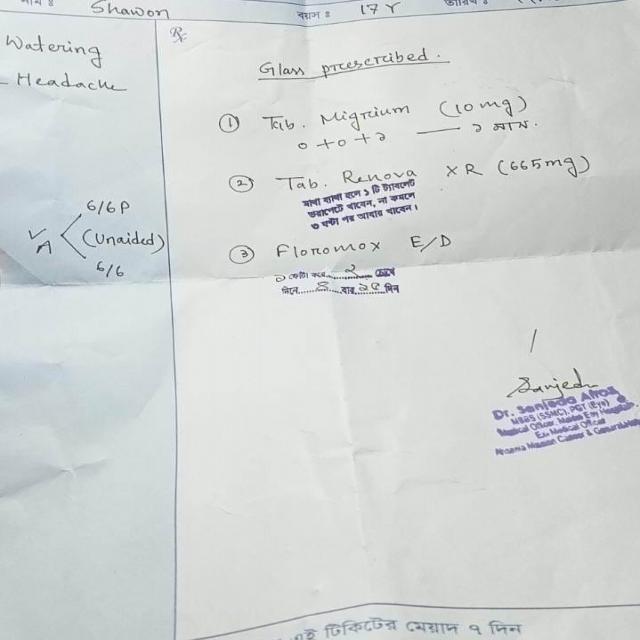 Shawon
বয়স ঃ 17 Y
Watering
- Headache
VA
6/6P
(Unaided)
6/6
Rx
Glass prescribed.
① Tab. Migreium (10mg)
0 + 0 + ১ — ১ মাস.
② Tab. Renova XR (665mg)
মাথা ব্যথা হলে ১ টি ট্যাবলেট
③ Floromox E/D
১ ফোটা করে.....২..... চোখে
দিনে.....8.....বার.....২৫.....দিন
Sanjeda
Dr. Sanjeda Afroz
MBBS (SSMC), PGT (Eye)
Medical Officer
Ex. Medical Officer
এই টিকিটের মেয়াদ ৭ দিন